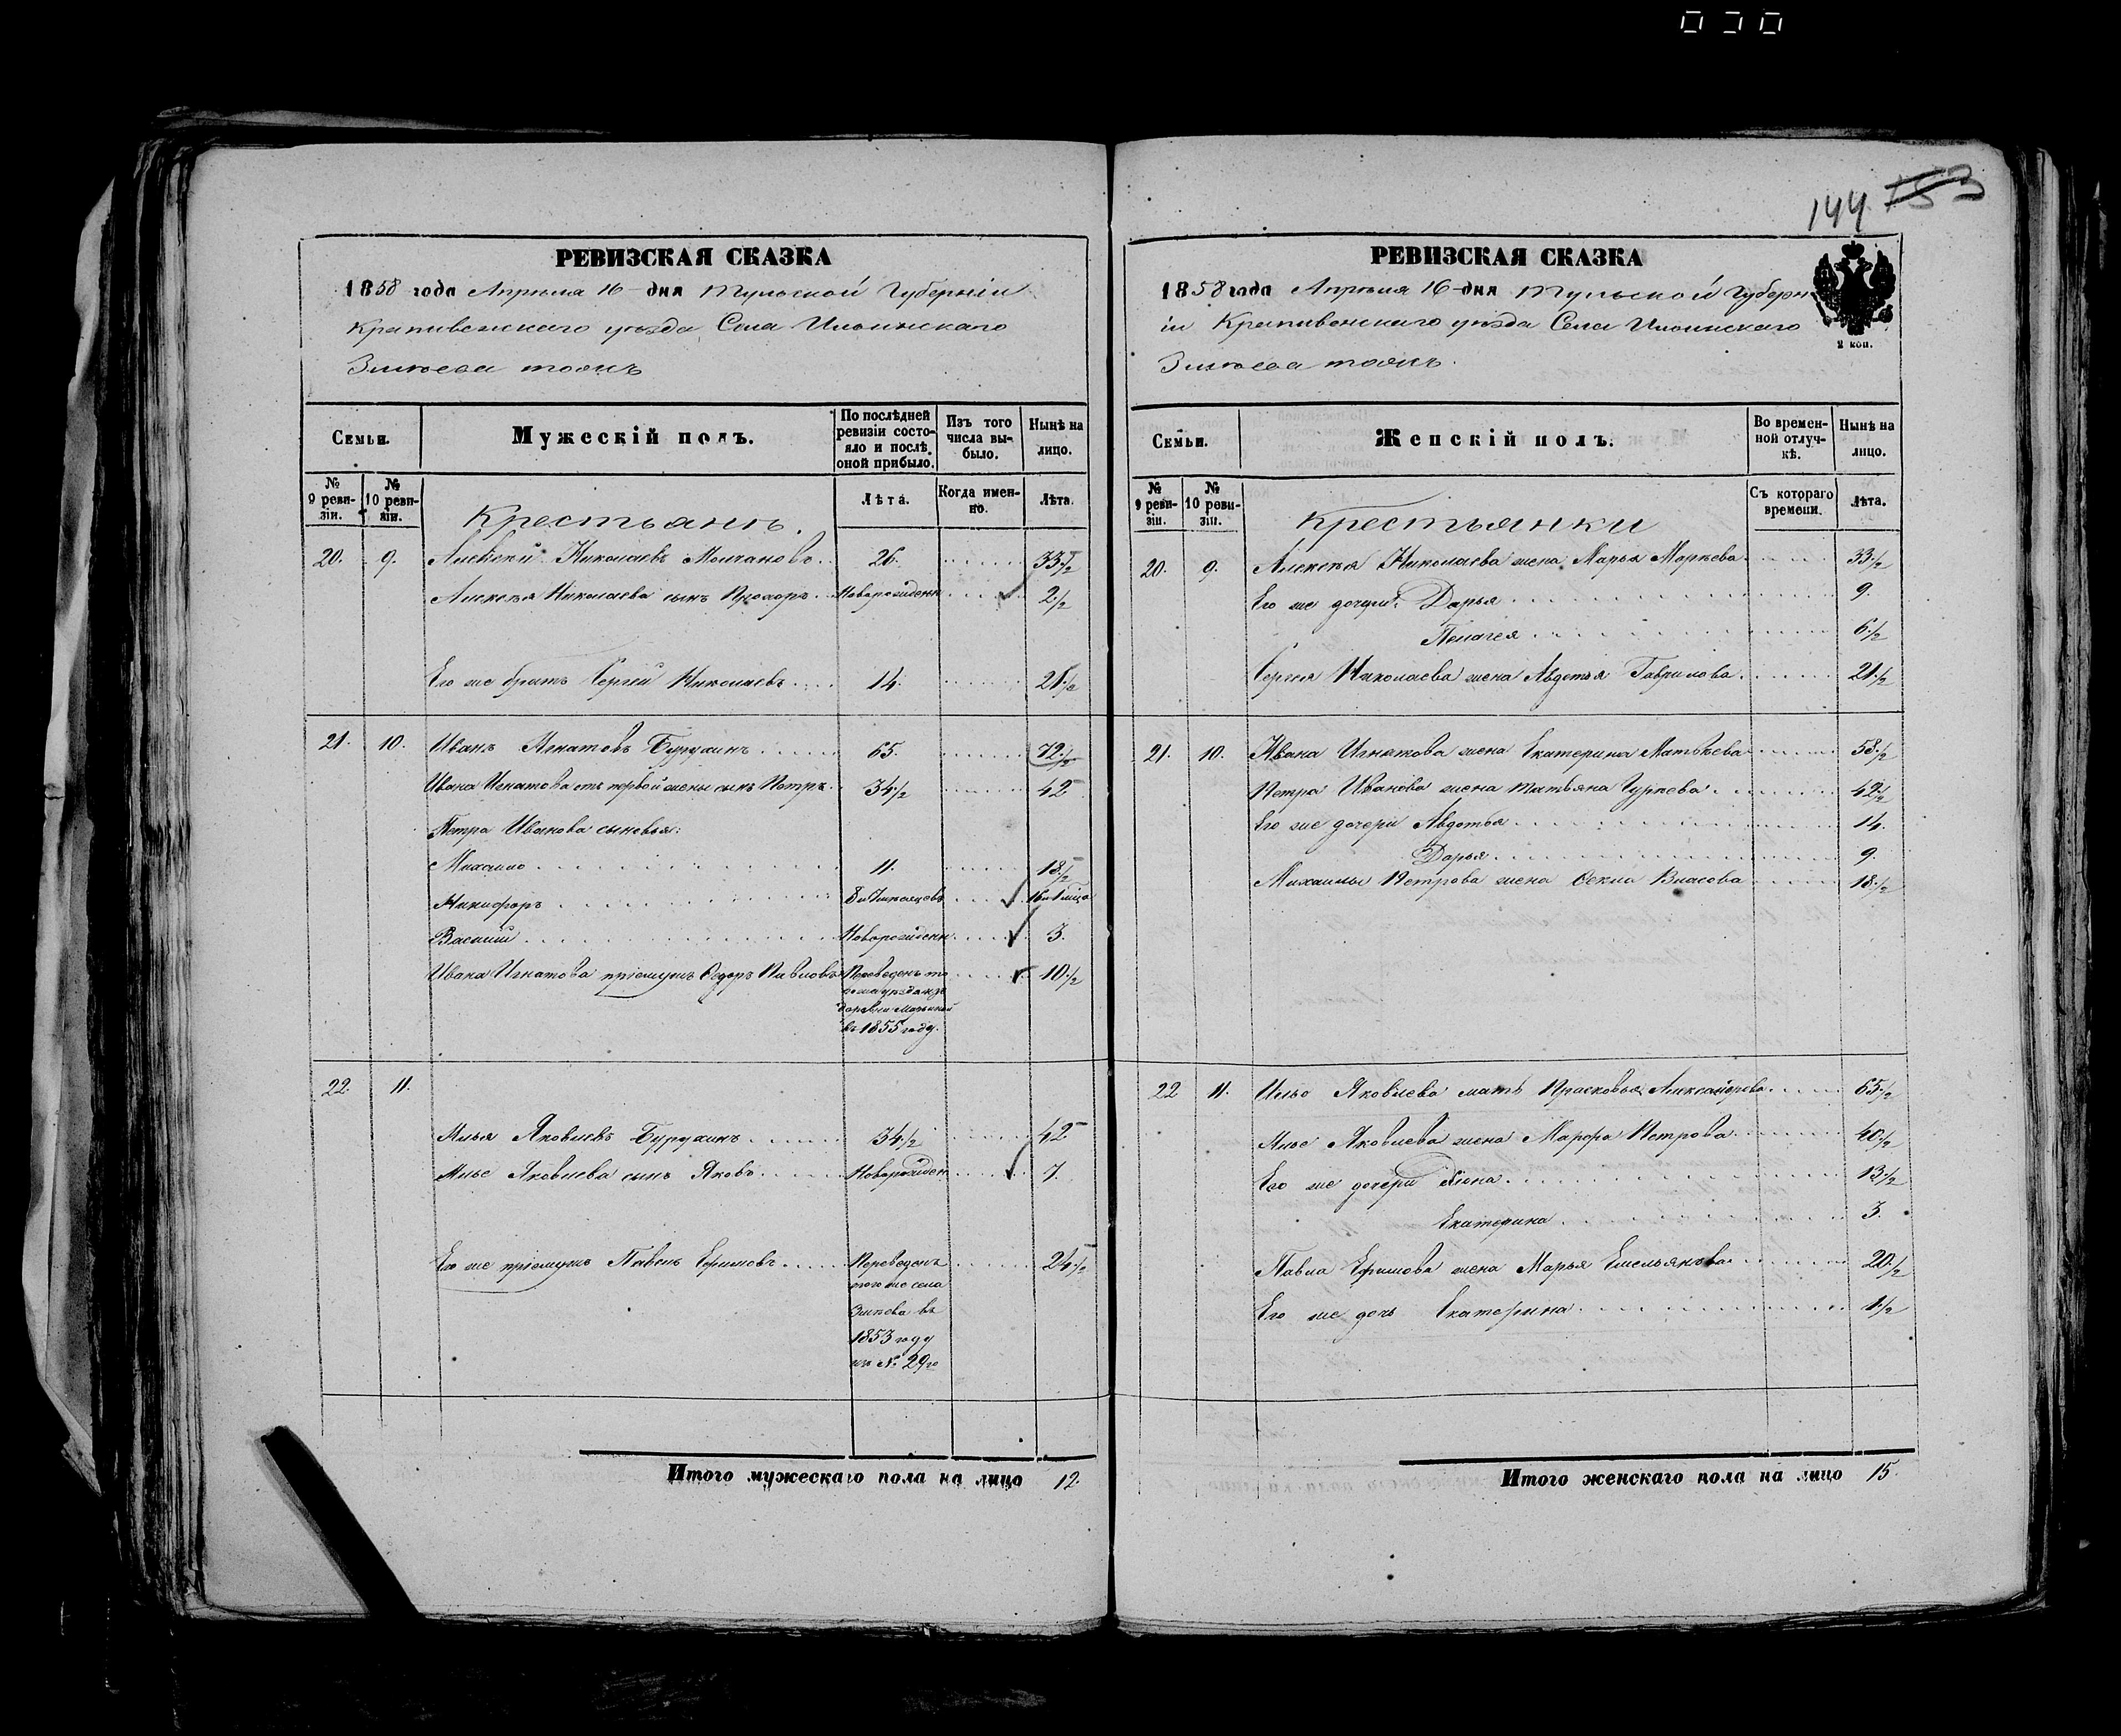 144 153
РЕВИЗСКАЯ СКАЗКА
1858 года Апреля 16 дня Тульской Губерніи
Крапивенскаго уезда Села Ильинскаго
Зыкова тожъ
Семьи.
Мужескій полъ.
По послѣдней ревизіи состояло и послѣ оной прибыло.
Изъ того числа выбыло.
Нынѣ на лицо.
№ 9 ревизіи.
№ 10 ревизіи.
Крестьянъ.
Лѣта.
Когда именно.
Лѣта.
20. 9. Алексѣй Николаевъ Молчановъ 26. 33 1/2
Алексѣя Николаева сынъ Прохоръ Новорожденн 2 1/2
Его же братъ Сергей Николаевъ 14. 21 1/2
21. 10. Иванъ Игнатовъ Бурухинъ 65. 72 1/2
Ивана Игнатова отъ первой жены сынъ Петръ 34 1/2 42
Петра Иванова сыновья:
Михаило 11. 18 1/2
Никифоръ
Василий Новорожденн 3.
Ивана Игнатова пріемышъ Федоръ Павловъ Переведенъ 10 1/2
въ 1855 году.
22. 11.
Илья Яковлевъ Бурухинъ 34 1/2 42
Илье Яковлева сынъ Яковъ Новорожден 7.
Его же пріемышъ Павелъ Ефимовъ Переведенъ 24 1/2
того же села
Зыкова въ
1853 году
изъ № 29го
Итого мужескаго пола на лицо 12.
РЕВИЗСКАЯ СКАЗКА
1858 года Апреля 16 дня Тульской Губерн
іи Крапивенскаго уезда Села Ильинскаго
Зыкова тожъ.
2 коп.
Семьи.
Женскій полъ.
Во временной отлучкѣ.
Нынѣ на лицо.
№ 9 ревизіи.
№ 10 ревизіи.
Крестьянки
Съ котораго времени.
Лѣта.
20. 9. Алексѣя Николаева жена Марья Маркева 33 1/2
Его же дочери: Дарья 9.
Пелагея 6 1/2
Сергея Николаева жена Авдотья Гаврилова 21 1/2
21. 10. Ивана Игнатова жена Екатерина Матвѣева 58 1/2
Петра Иванова жена Татьяна Гурьева 42 1/2
Его же дочери Авдотья 14.
Дарья 9.
Михаилы Петрова жена Фекла Власова 18 1/2
22 11. Илье Яковлева мать Прасковья Александрова 65 1/2
Илье Яковлева жена Марфа Петрова 40 1/2
Его же дочери Алена 13 1/2
Екатерина 3.
Павла Ефимова жена Марья Емельянова 20 1/2
Его же дочь Екатерина 1 1/2
Итого женскаго пола на лицо 15.